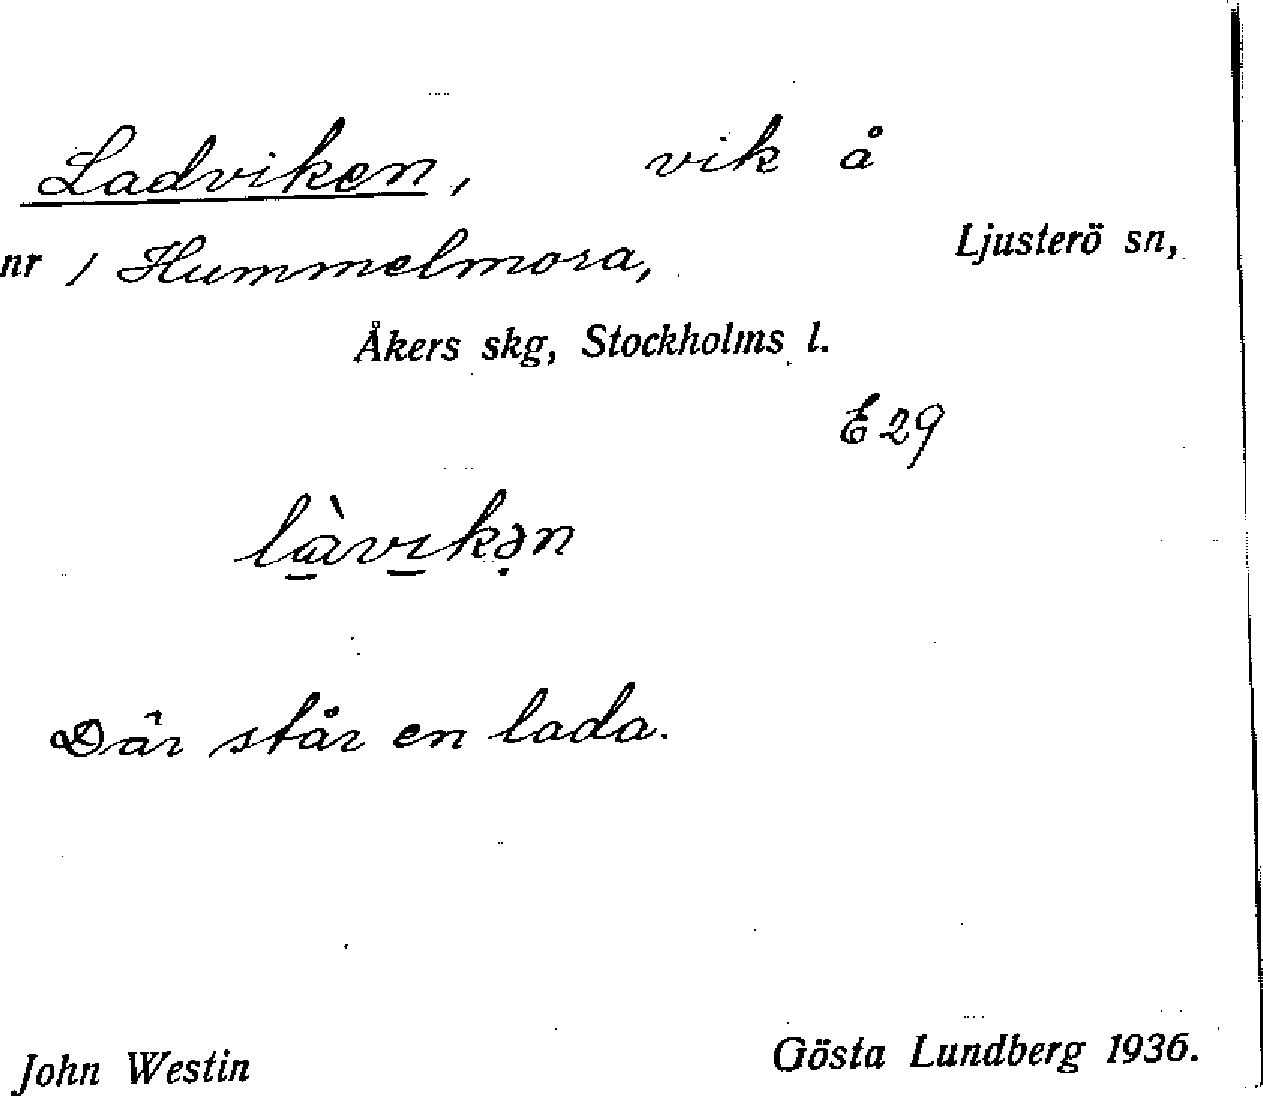 Ladviken, vik å
nr 1 Hummelmora, Ljusterö sn,
Åkers skg, Stockholms l.
E 29
làvıkən
Där står en lada.
John Westin Gösta Lundberg 1936.